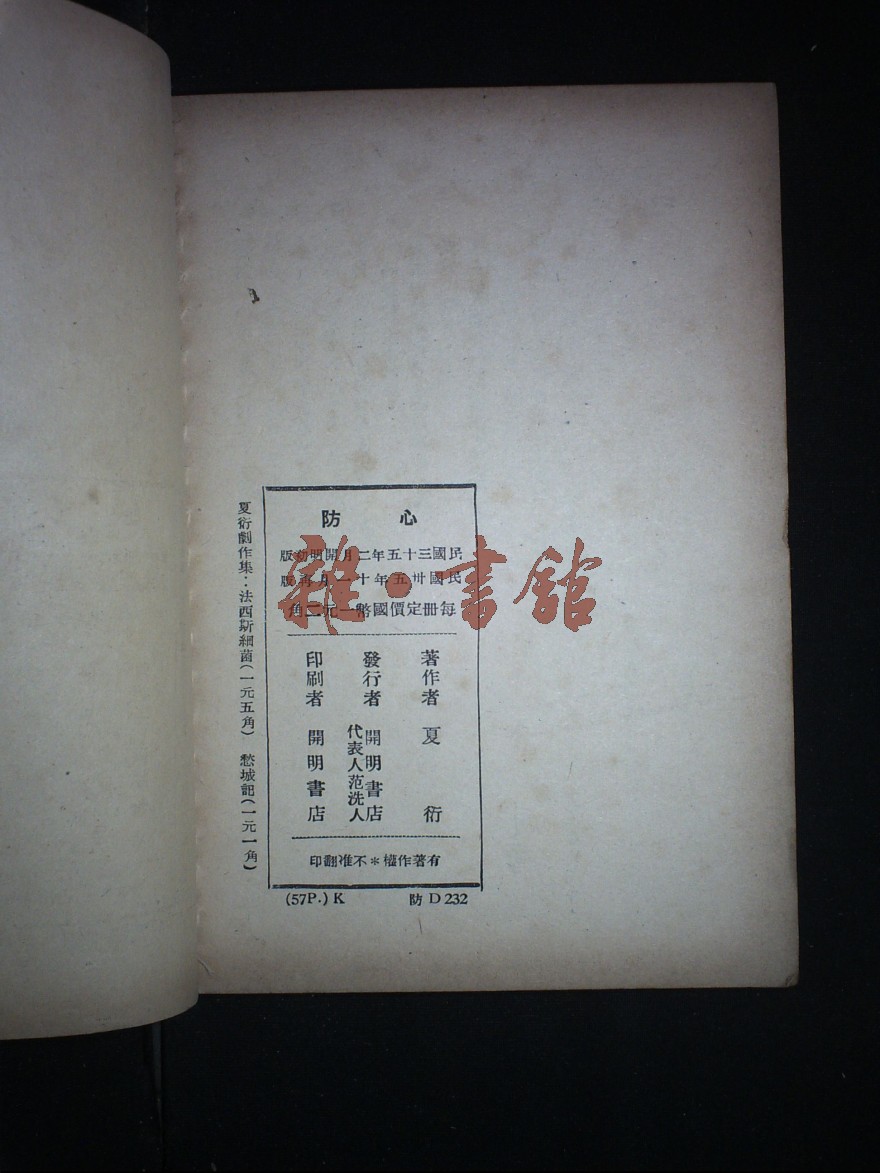 心防
民國三十五年二月開明初版
民國卅五年十一月再版
每冊定價國幣一元二角
著作者 夏衍
發行者 開明書店
代表人范洗人
印刷者 開明書店
有著作權＊不准翻印
(57P.) K 防 D 232
夏衍劇作集：法西斯細菌(一元五角) 愁城記(一元一角)
雜·書館